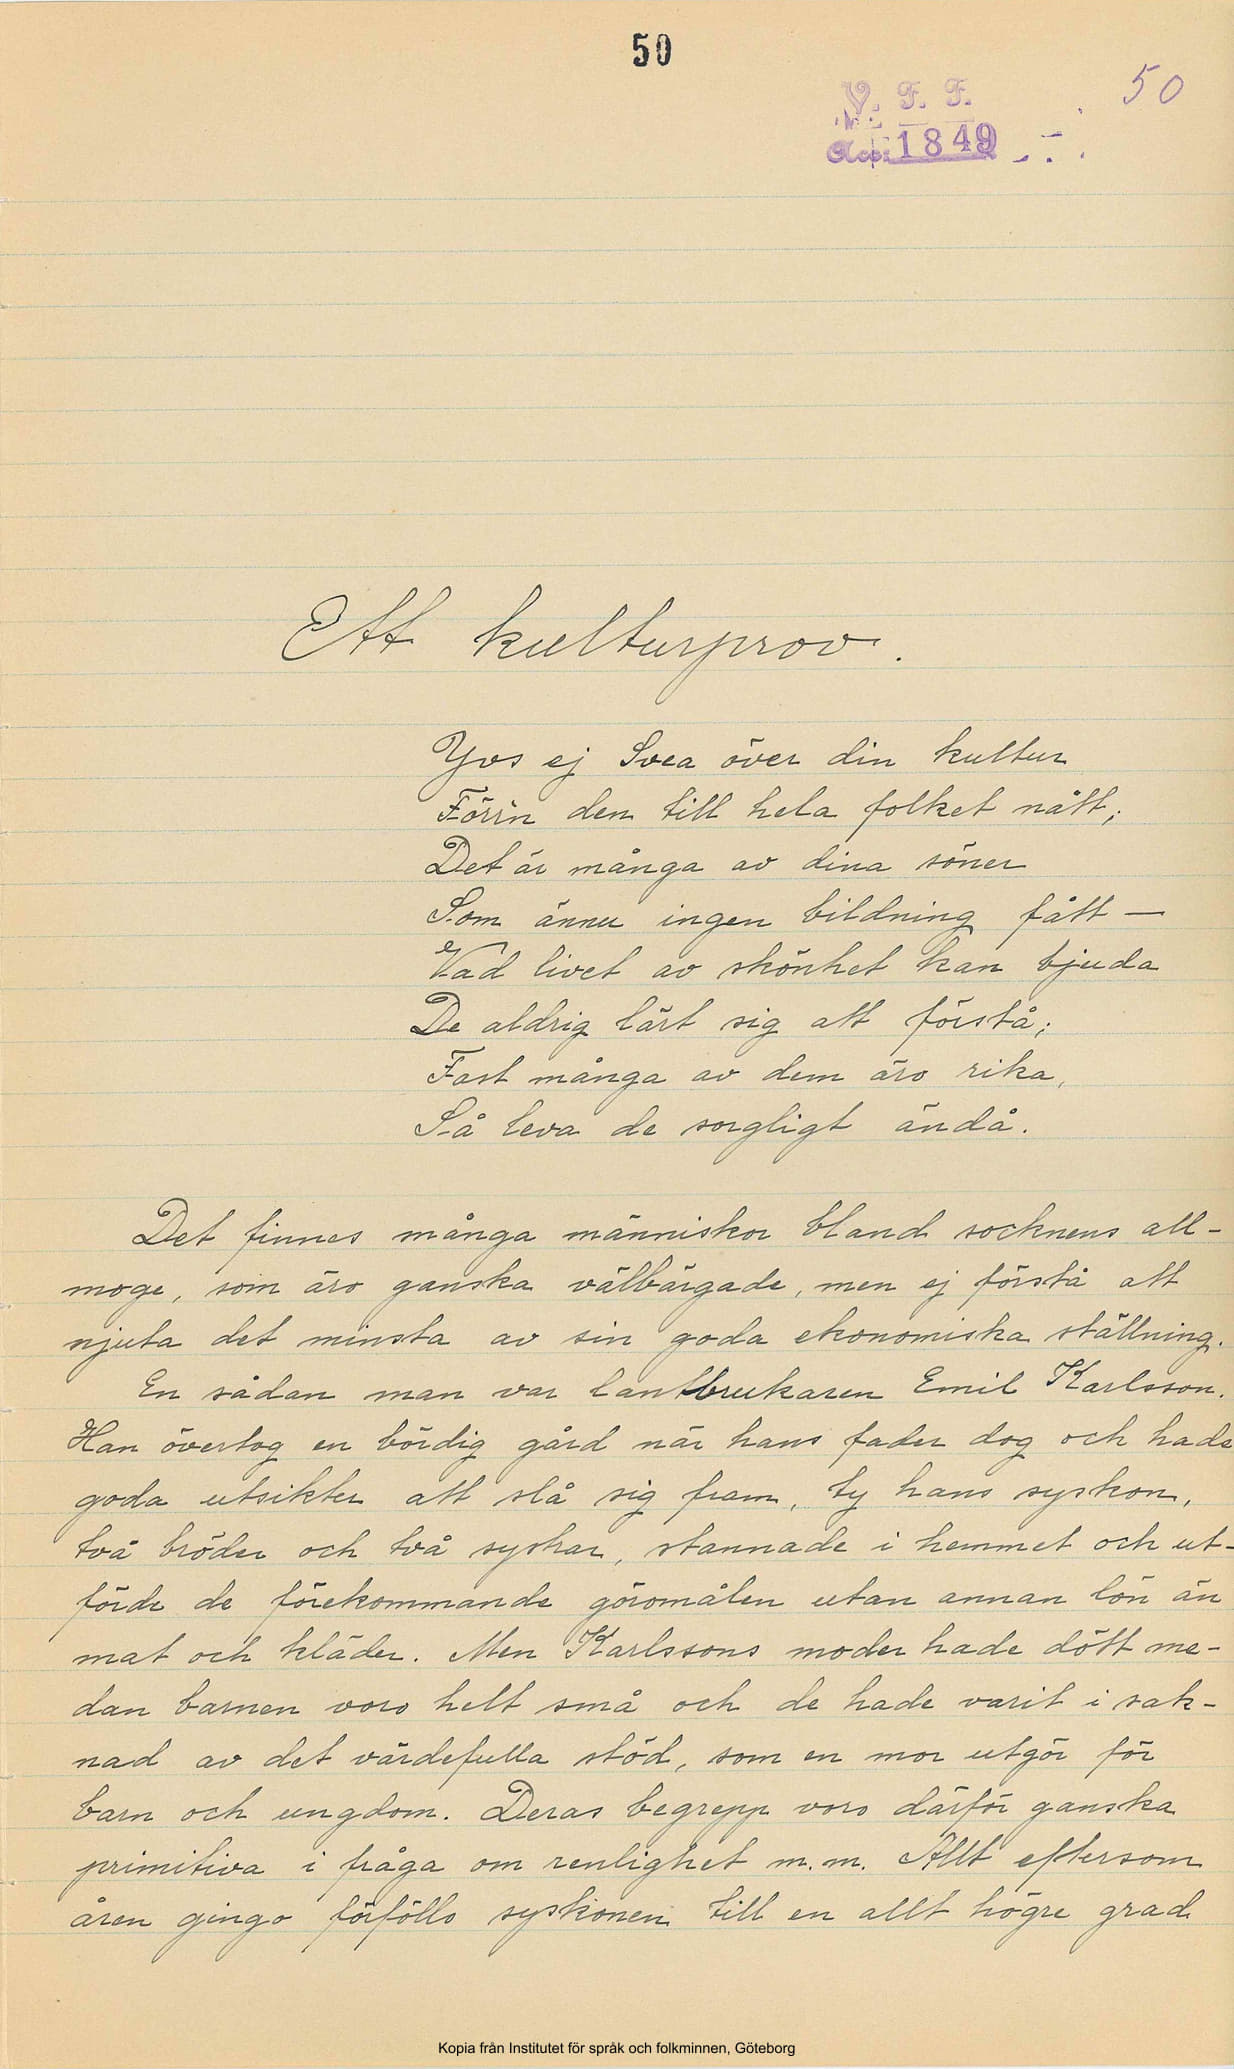 50
50
V. F. F.
Acc: 1849
Ett kulturprov.
Yvs ej Svea över din kultur
Förr'n den till hela folket nått;
Det är många av dina söner
Som ännu ingen bildning fått —
Vad livet av skönhet kan bjuda
De aldrig lärt sig att förstå;
Fast många av dem äro rika,
Så leva de sorgligt ändå.
Det finnes många människor bland socknens all-
moge, som äro ganska välbärgade, men ej förstå att
njuta det minsta av sin goda ekonomiska ställning.
En sådan man var lantbrukaren Emil Karlsson.
Han övertog en bördig gård när hans fader dog och hade
goda utsikter att slå sig fram, ty hans syskon,
två bröder och två systrar, stannade i hemmet och ut-
förde de förekommande göromålen utan annan lön än
mat och kläder. Men Karlssons moder hade dött me-
dan barnen voro helt små och de hade varit i sak-
nad av det värdefulla stöd, som en mor utgör för
barn och ungdom. Deras begrepp voro därför ganska
primitiva i fråga om renlighet m.m. Allt eftersom
åren gingo förföllo syskonen till en allt högre grad
Kopia från Institutet för språk och folkminnen, Göteborg